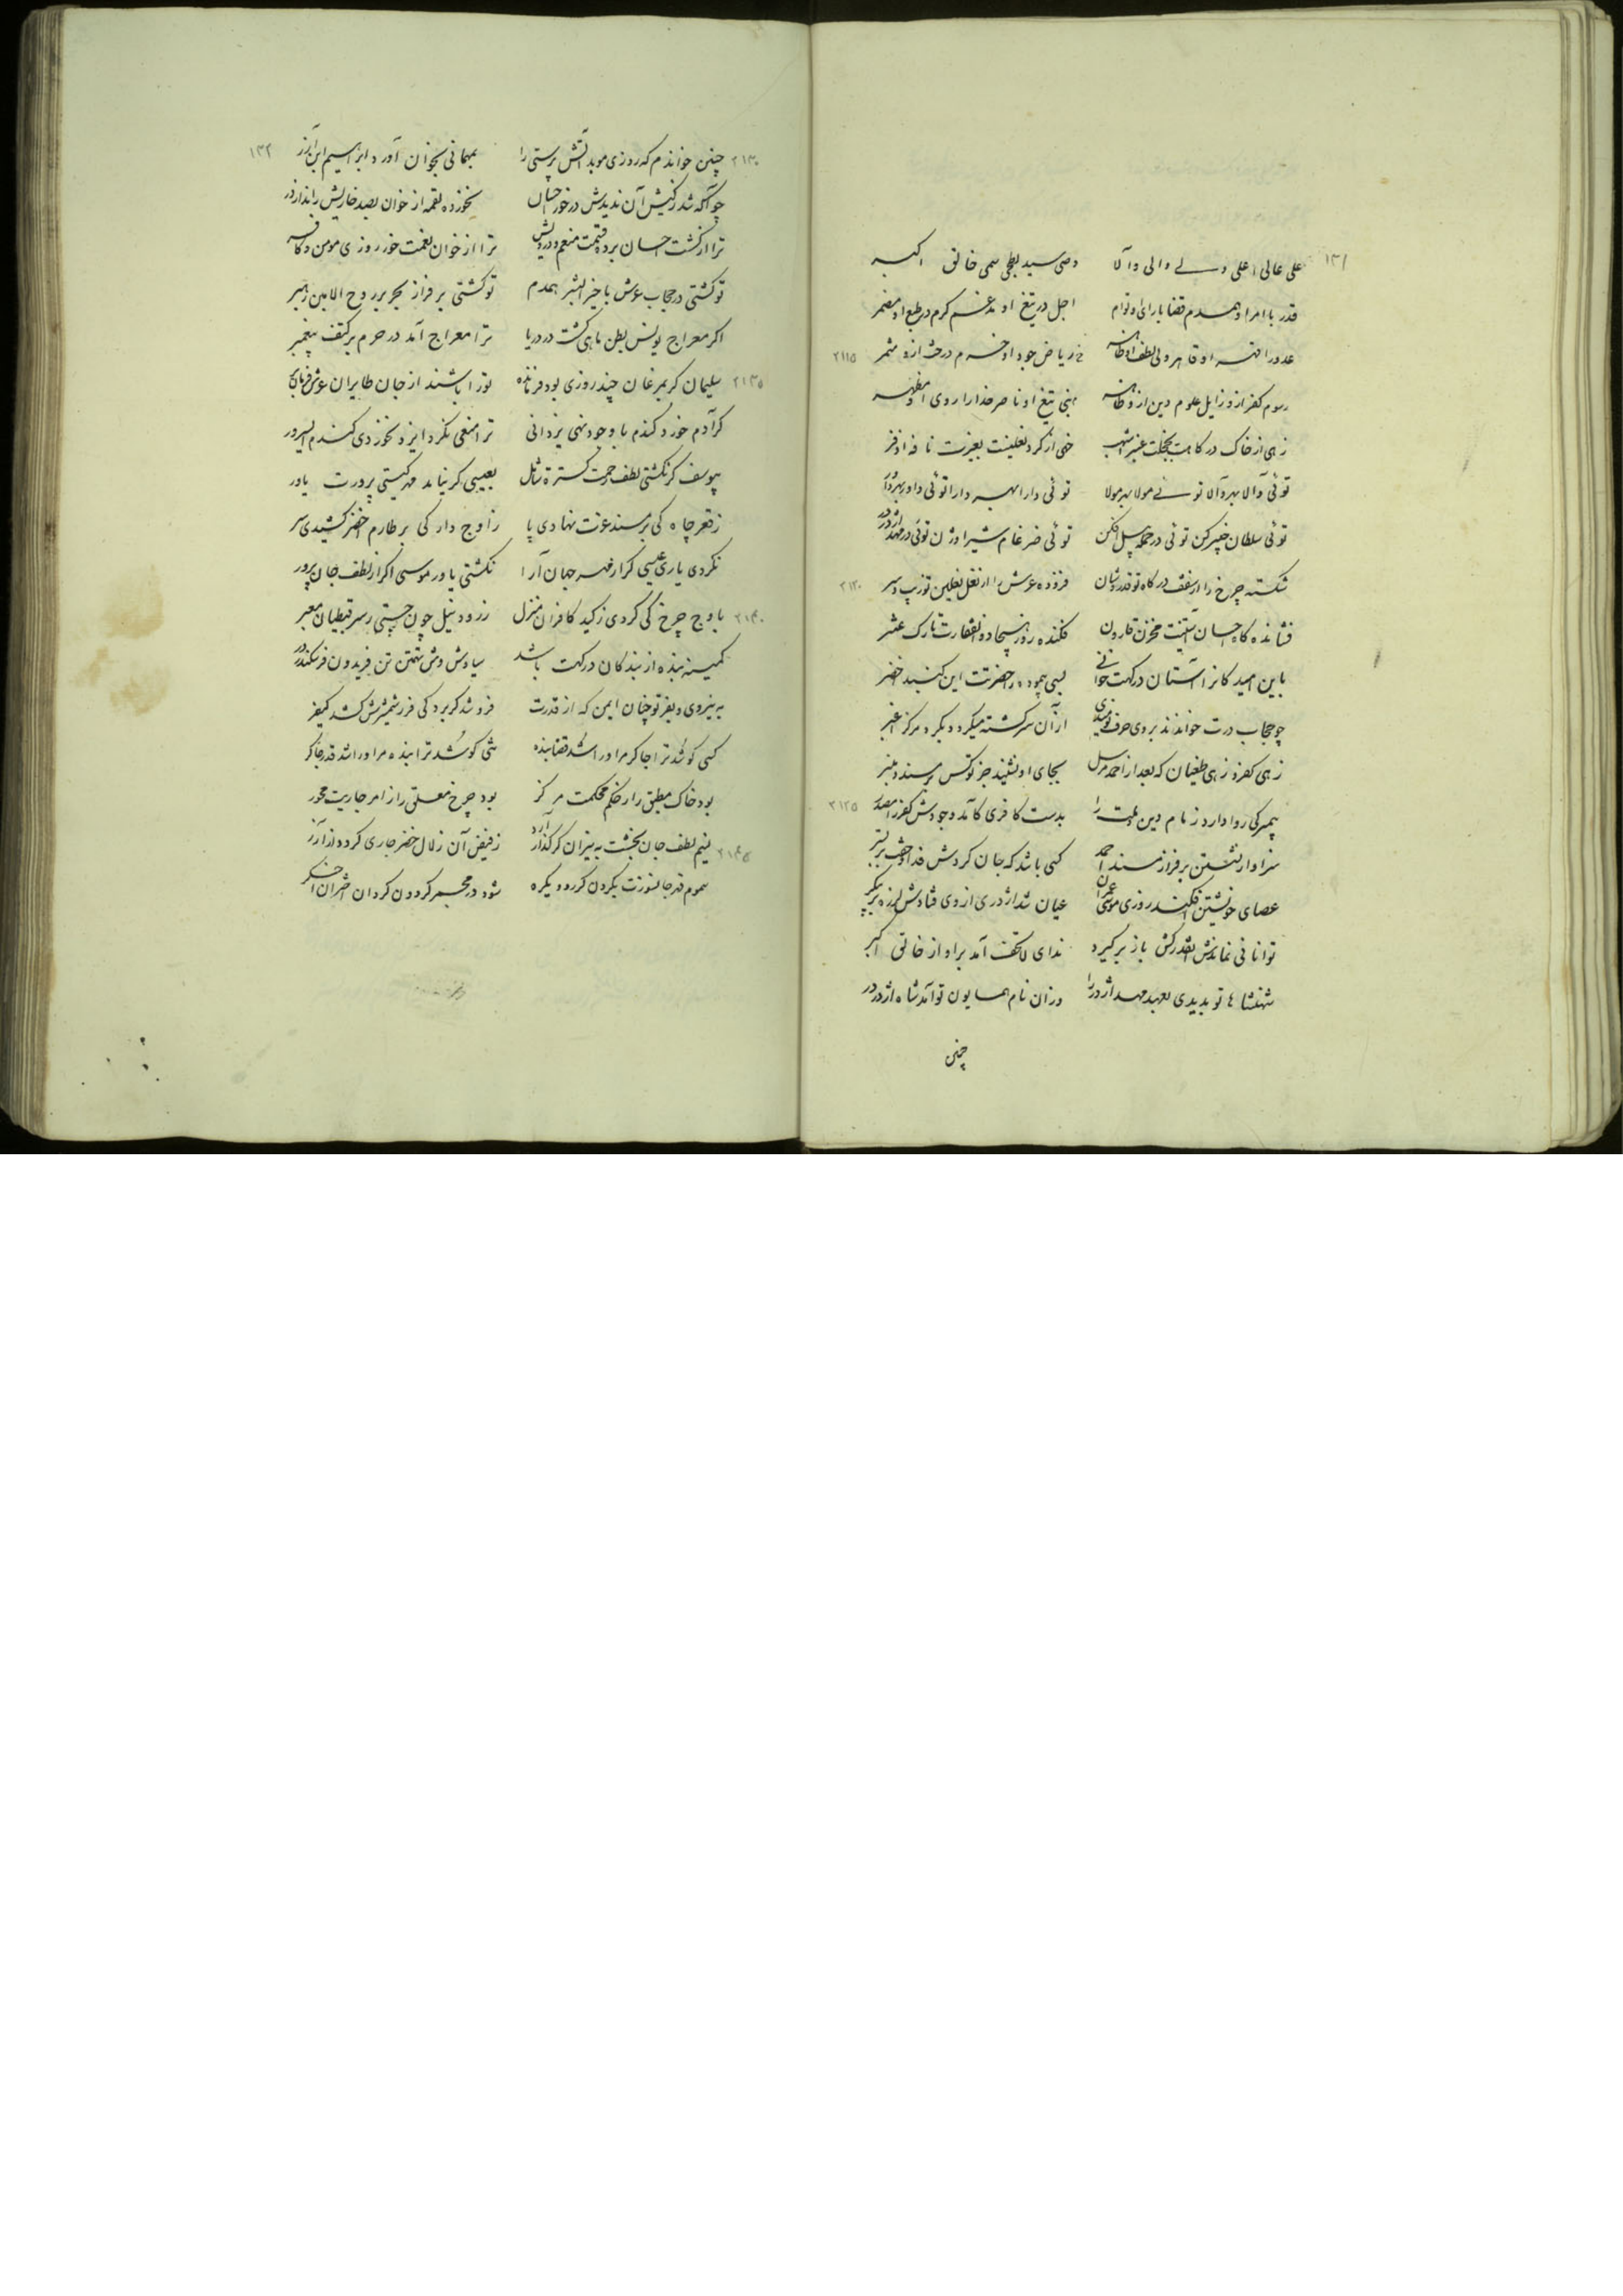 ۱۳۱
علی عالی اعلی ولی والی والا وصی سید بطحی سمی خالق اکبر
قدر با امر او همدم قضا با رای او توام اجل در تیغ او مدغم کرم در طبع او مضمر
عدو را قهر او قاهر ولی لطف او ظاهر ریاض جود او خرم درخت ازو مثمر ۲۱۱۵
رسوم کفر ازو زایل علوم دین ازو ظاهر نبی تیغ او ناصر خدا را روی او مظهر
زهی از خاک درگاهت بخجلت عنبر اشهب خهی از گرد نعلینت بغیرت نافه اذفر
توئی والا بهر والا توئی مولا بهر مولا توئی دارا بهر دارا توئی داور بهر داور
توئی سلطان خیبرکن توئی در حمله پیل افکن توئی ضرغام شیر اوژن توئی در مهد اژدر در
شکسته چرخ را از سقف درگاه تو قدر و شان فزوده عرش را از نعل نعلین تو زیب و فر ۲۱۲۰
فشانده گاه احسان آستینت مخزن قارون فکنده روز هیجا ذوالفقارت تارک عنتر
باین امید کانرا آستان درگهت خوانی بسی پیمود در حضرتت این گنبد اخضر
چو حجاب درت خواندند بروی حرف نومیدی از آن سرگشته میگردد بگرد مرکز اغبر
زهی کفر و زهی طغیان که بعد از احمد مرسل بجای او نشیند جز تو کس بر مسند و منبر
پیمبر کی روا دارد زمام دین و ملت را بدست کافری کامد وجودش کفر را مصدر ۲۱۲۵
سزاوار نشستن بر فراز مسند احمد کسی باشد که جان کردش فدا و خفت بر بستر
عصای خویشتن افکند روزی موسی عمران عیان شد اژدری از وی فتادش لرزه بر پیکر
توانائی نماندش آنقدر کش باز برگیرد ندای لاتخف آمد بر او از خالق اکبر
شهنشاها تو بدریدی بعهد مهد اژدر را وزان نام همایون تو آمد شاه اژدر در
چنین
۱۳۲
۲۱۳۰ چنین خواندم که روزی موبد آتش پرستی را بمهمانی بخوان آورد ابراهیم ابن آزر
چو آگه شد ز کیش آن ندیدش در خور احسان نخورده لقمه از خوان بصد خاریش راند از در
ترا از کشت احسان برده قسمت منعم و درویش ترا از خوان نعمت خورد روزی مومن و کافر
تو گشتی در حجاب عرش با خیرالبشر همدم تو گشتی بر فراز بحر بر روح الامین رهبر
اگر معراج یونس بطن ماهی گشت در دریا ترا معراج آمد در حرم بر کتف پیغمبر
۲۱۳۵ سلیمان گر بمرغان چند روزی بود فرمانده تو را باشند از جان طایران عرش فرمانبر
گر آدم خورد گندم با وجود نهی یزدانی ترا منعی نکرد ایزد نخوردی گندم ای سرور
بیوسف گر نگشتی لطف رحمت گسترت شامل بعیسی گر نیامد مهر گیتی پرورت یاور
ز قعر چاه کی بر مسند عزت نهادی پا ز اوج دار کی بر طارم اخضر کشیدی سر
نکردی یاری عیسی گر از مهر جهان آرا نگشتی یاور موسی اگر از لطف جان پرور
۲۱۴۰ باوج چرخ کی کردی ز کید کافران منزل ز رود نیل چون جستی ز سر قبطیان معبر
کمینه بنده از بندگان درگهت باشد سیاوش وش تهمتن تن فریدون فر سکندر در
به نیروی و بفر تو چنان ایمن که از قدرت فرو شد گر برد کی فر شمشیرش کشد کیفر
کسی کو شد ترا چاکر مر او را شد قضا بنده شهی کو شد ترا بنده مر او را شد قدر چاکر
بود خاک مطبق را ز حکم محکمت مرکز بود چرخ معلق را ز امر جاریت محور
۲۱۴۵ نسیم لطف جان بخشت به نیران گر گذار آرد ز فیض آن زلال خضر جاری گردد از آذر
سموم قهر جانسوزت بگردون گر رود یکره شود در مجمر گردون گردان اختران اخگر